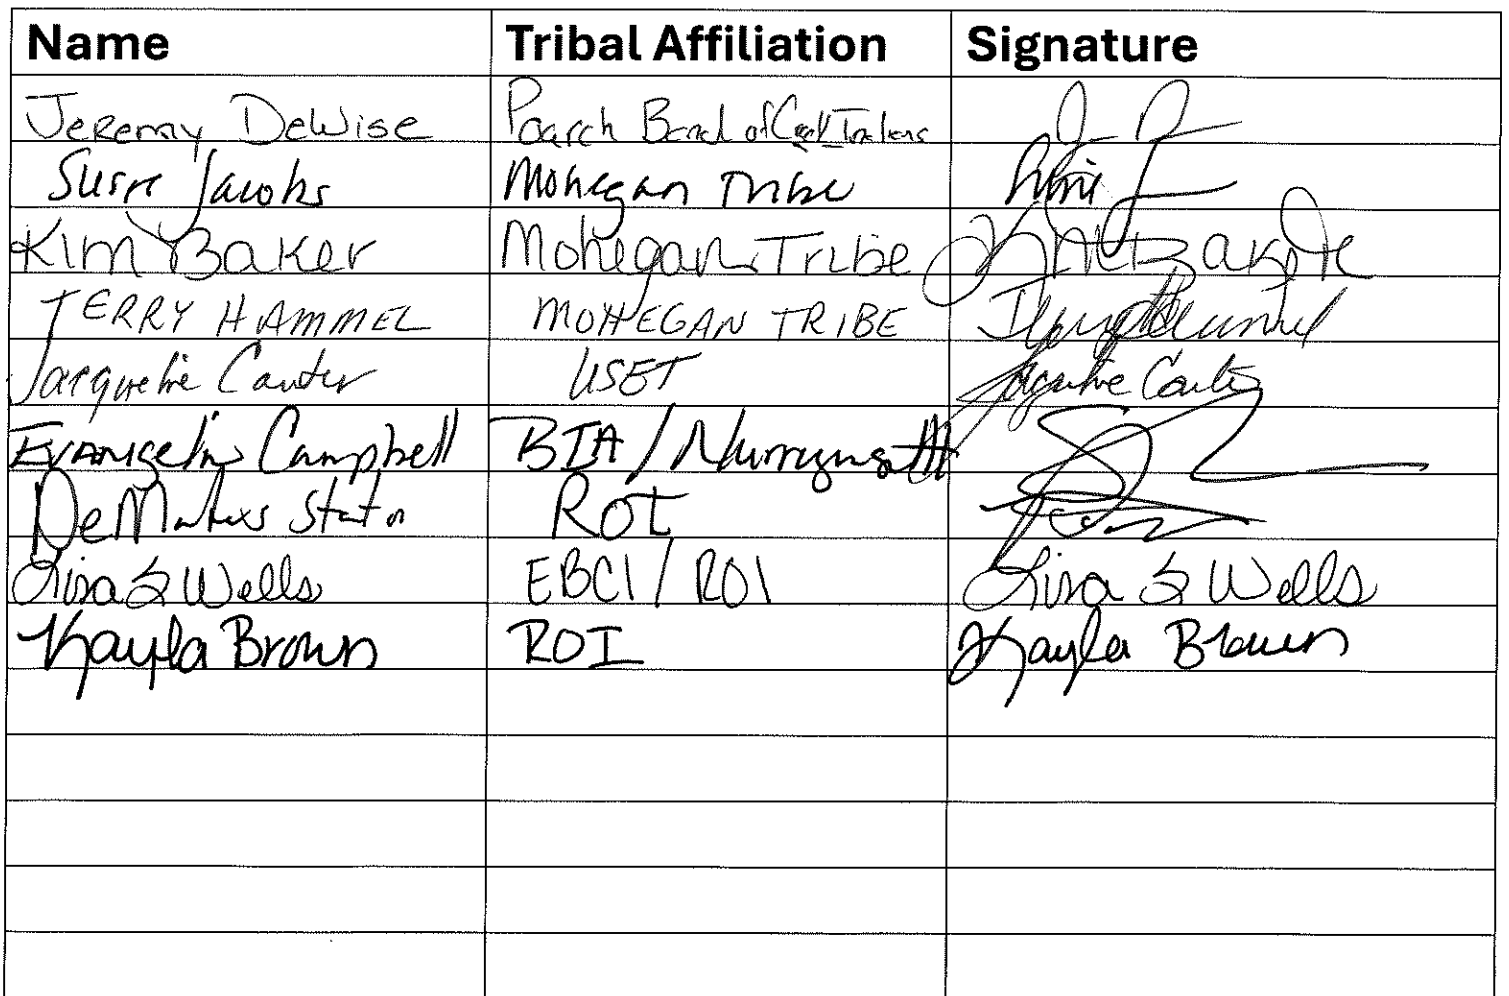 Name Tribal Affiliation Signature
Jeremy DeWise Poarch Band of Creek Indians
Susie Jacobs Mohegan Tribe Susie
Kim Baker Mohegan Tribe Kim Baker
TERRY HAMMEL MOHEGAN TRIBE Terry Hammel
Jacqueline Carter USET Jacqueline Carter
Evangelin Campbell BIA /
DeMarkus ROI
Lisa Wells EBCI / ROI Lisa Wells
Kayla Brown ROI Kayla Brown